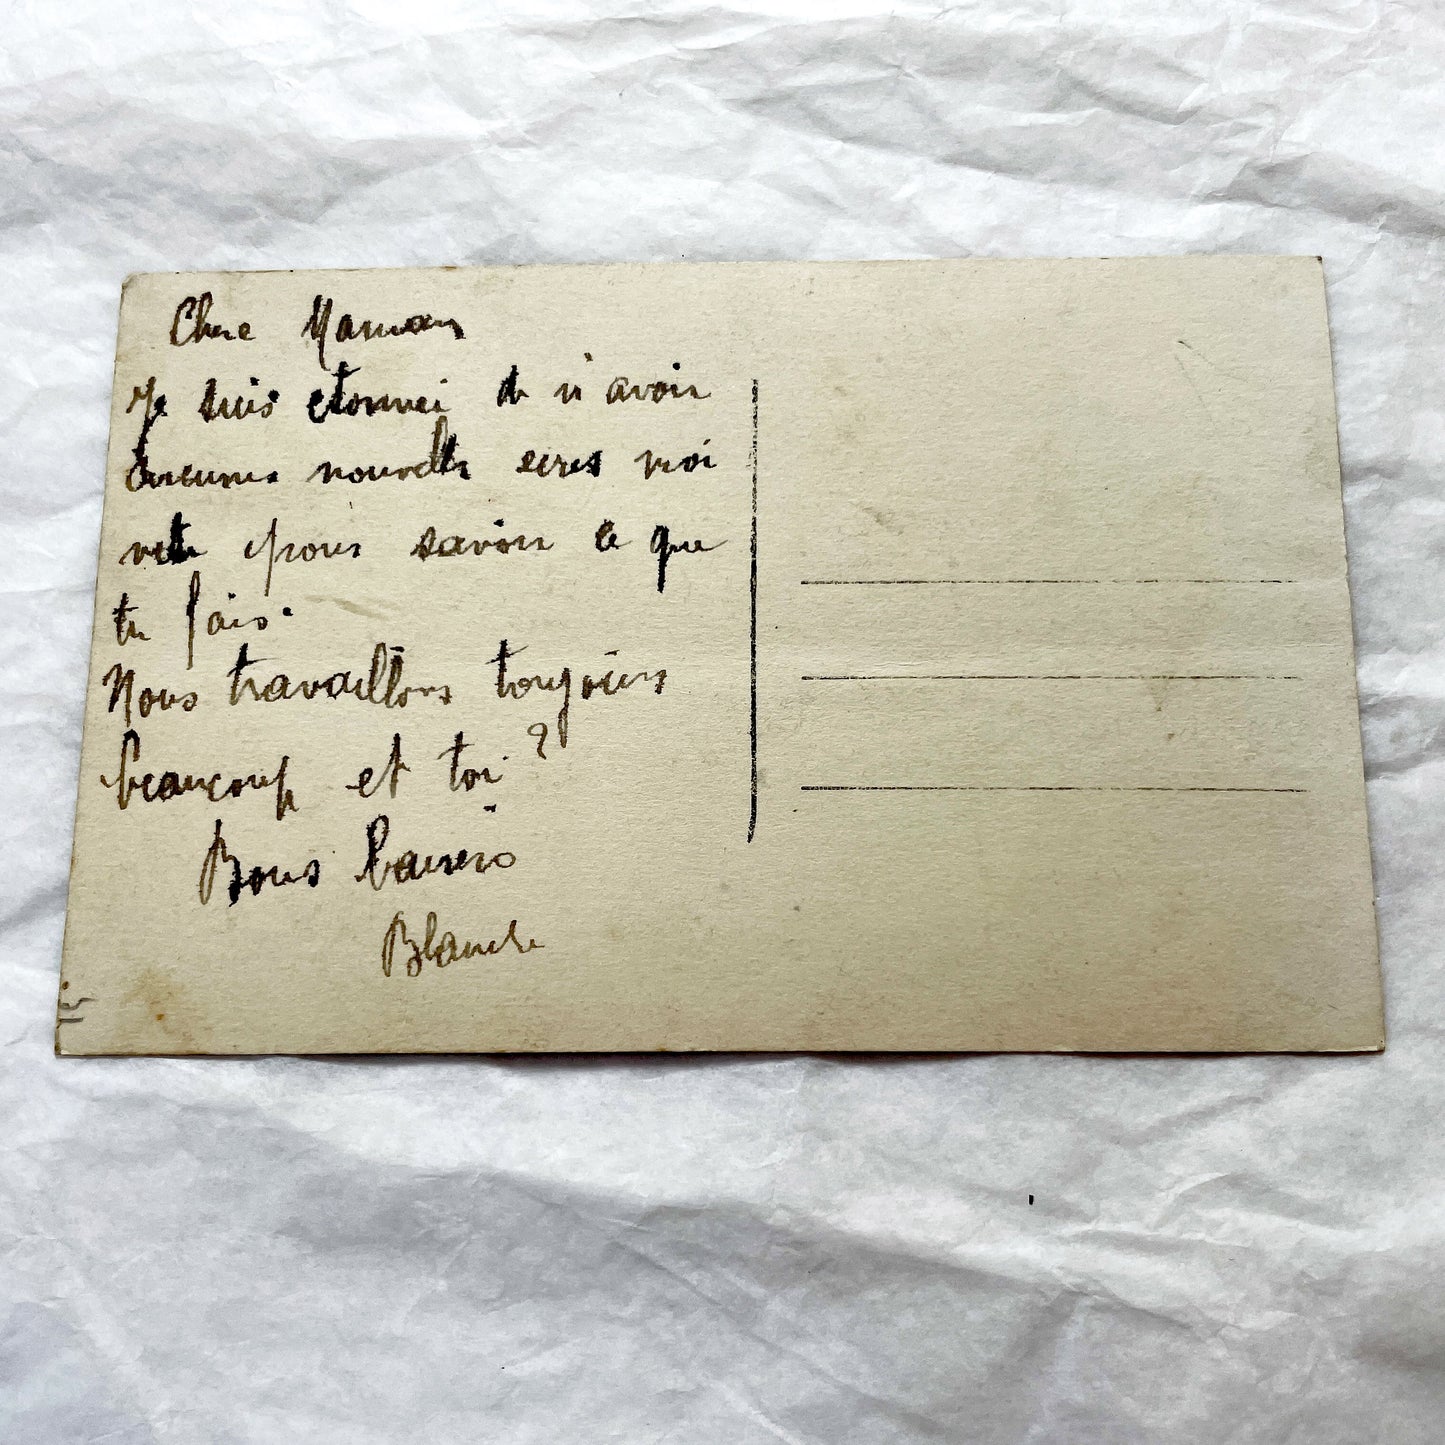 Chere Maman
Je suis etonnei de n'avoir
aucunes nouvelles ecres moi
vite pour savoir ce que
tu fais.
Nous travaillons toujours
beaucoup et toi ?
Bons baisers
Blanche